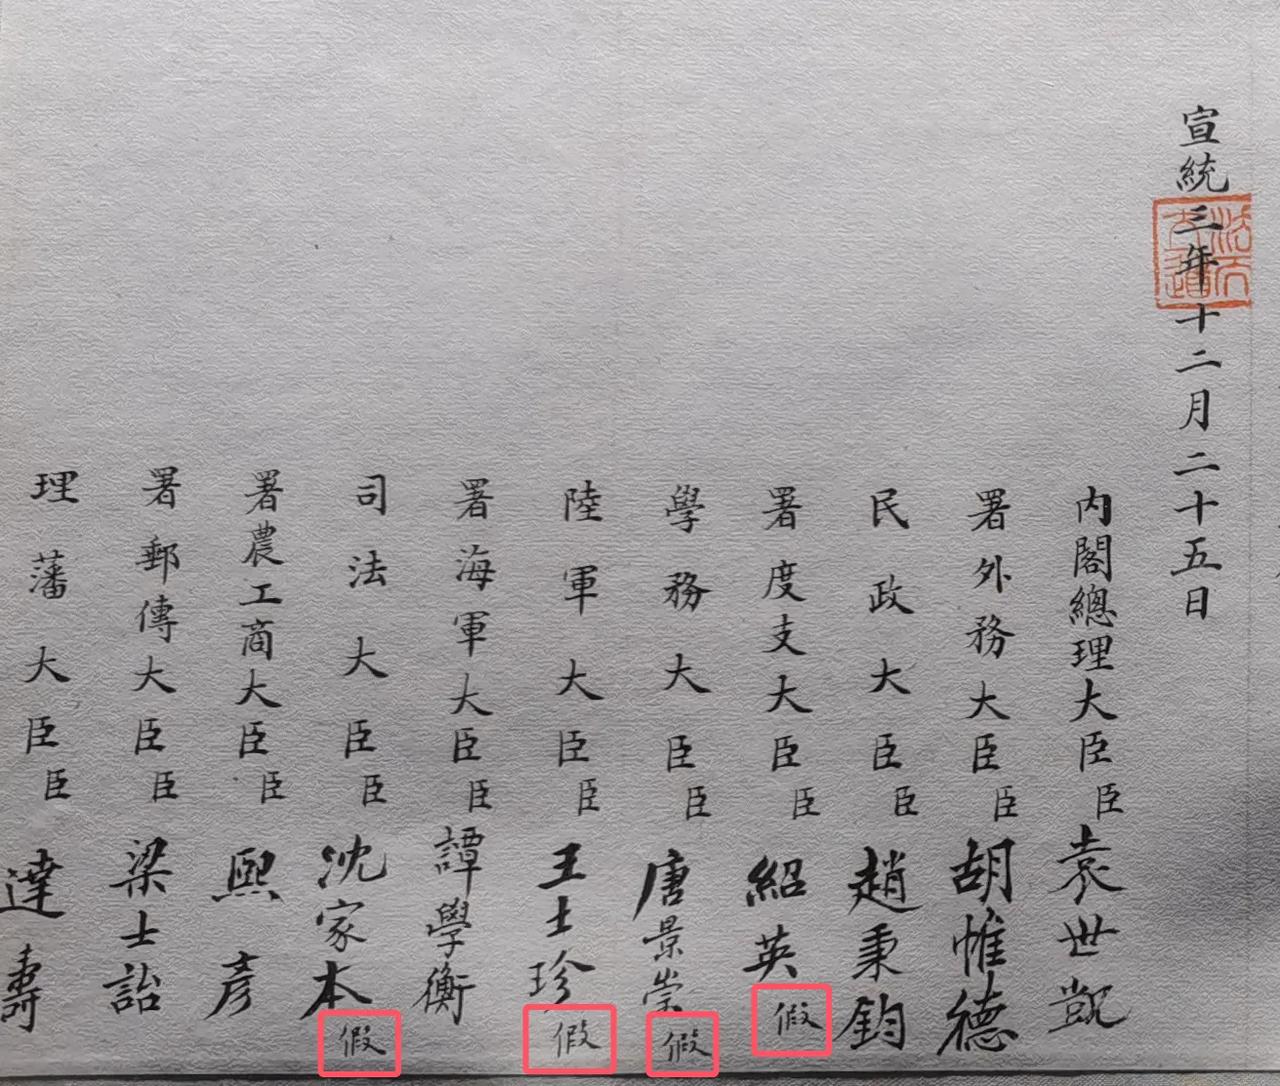 宣統三年十二月二十五日
法天立道
內閣總理大臣臣袁世凱
署外務大臣臣胡惟德
民政大臣臣趙秉鈞
署度支大臣臣紹英假
學務大臣臣唐景崇假
陸軍大臣臣王士珍假
署海軍大臣臣譚學衡
司法大臣臣沈家本假
署農工商大臣臣熙彥
署郵傳大臣臣梁士詒
理藩大臣臣達壽